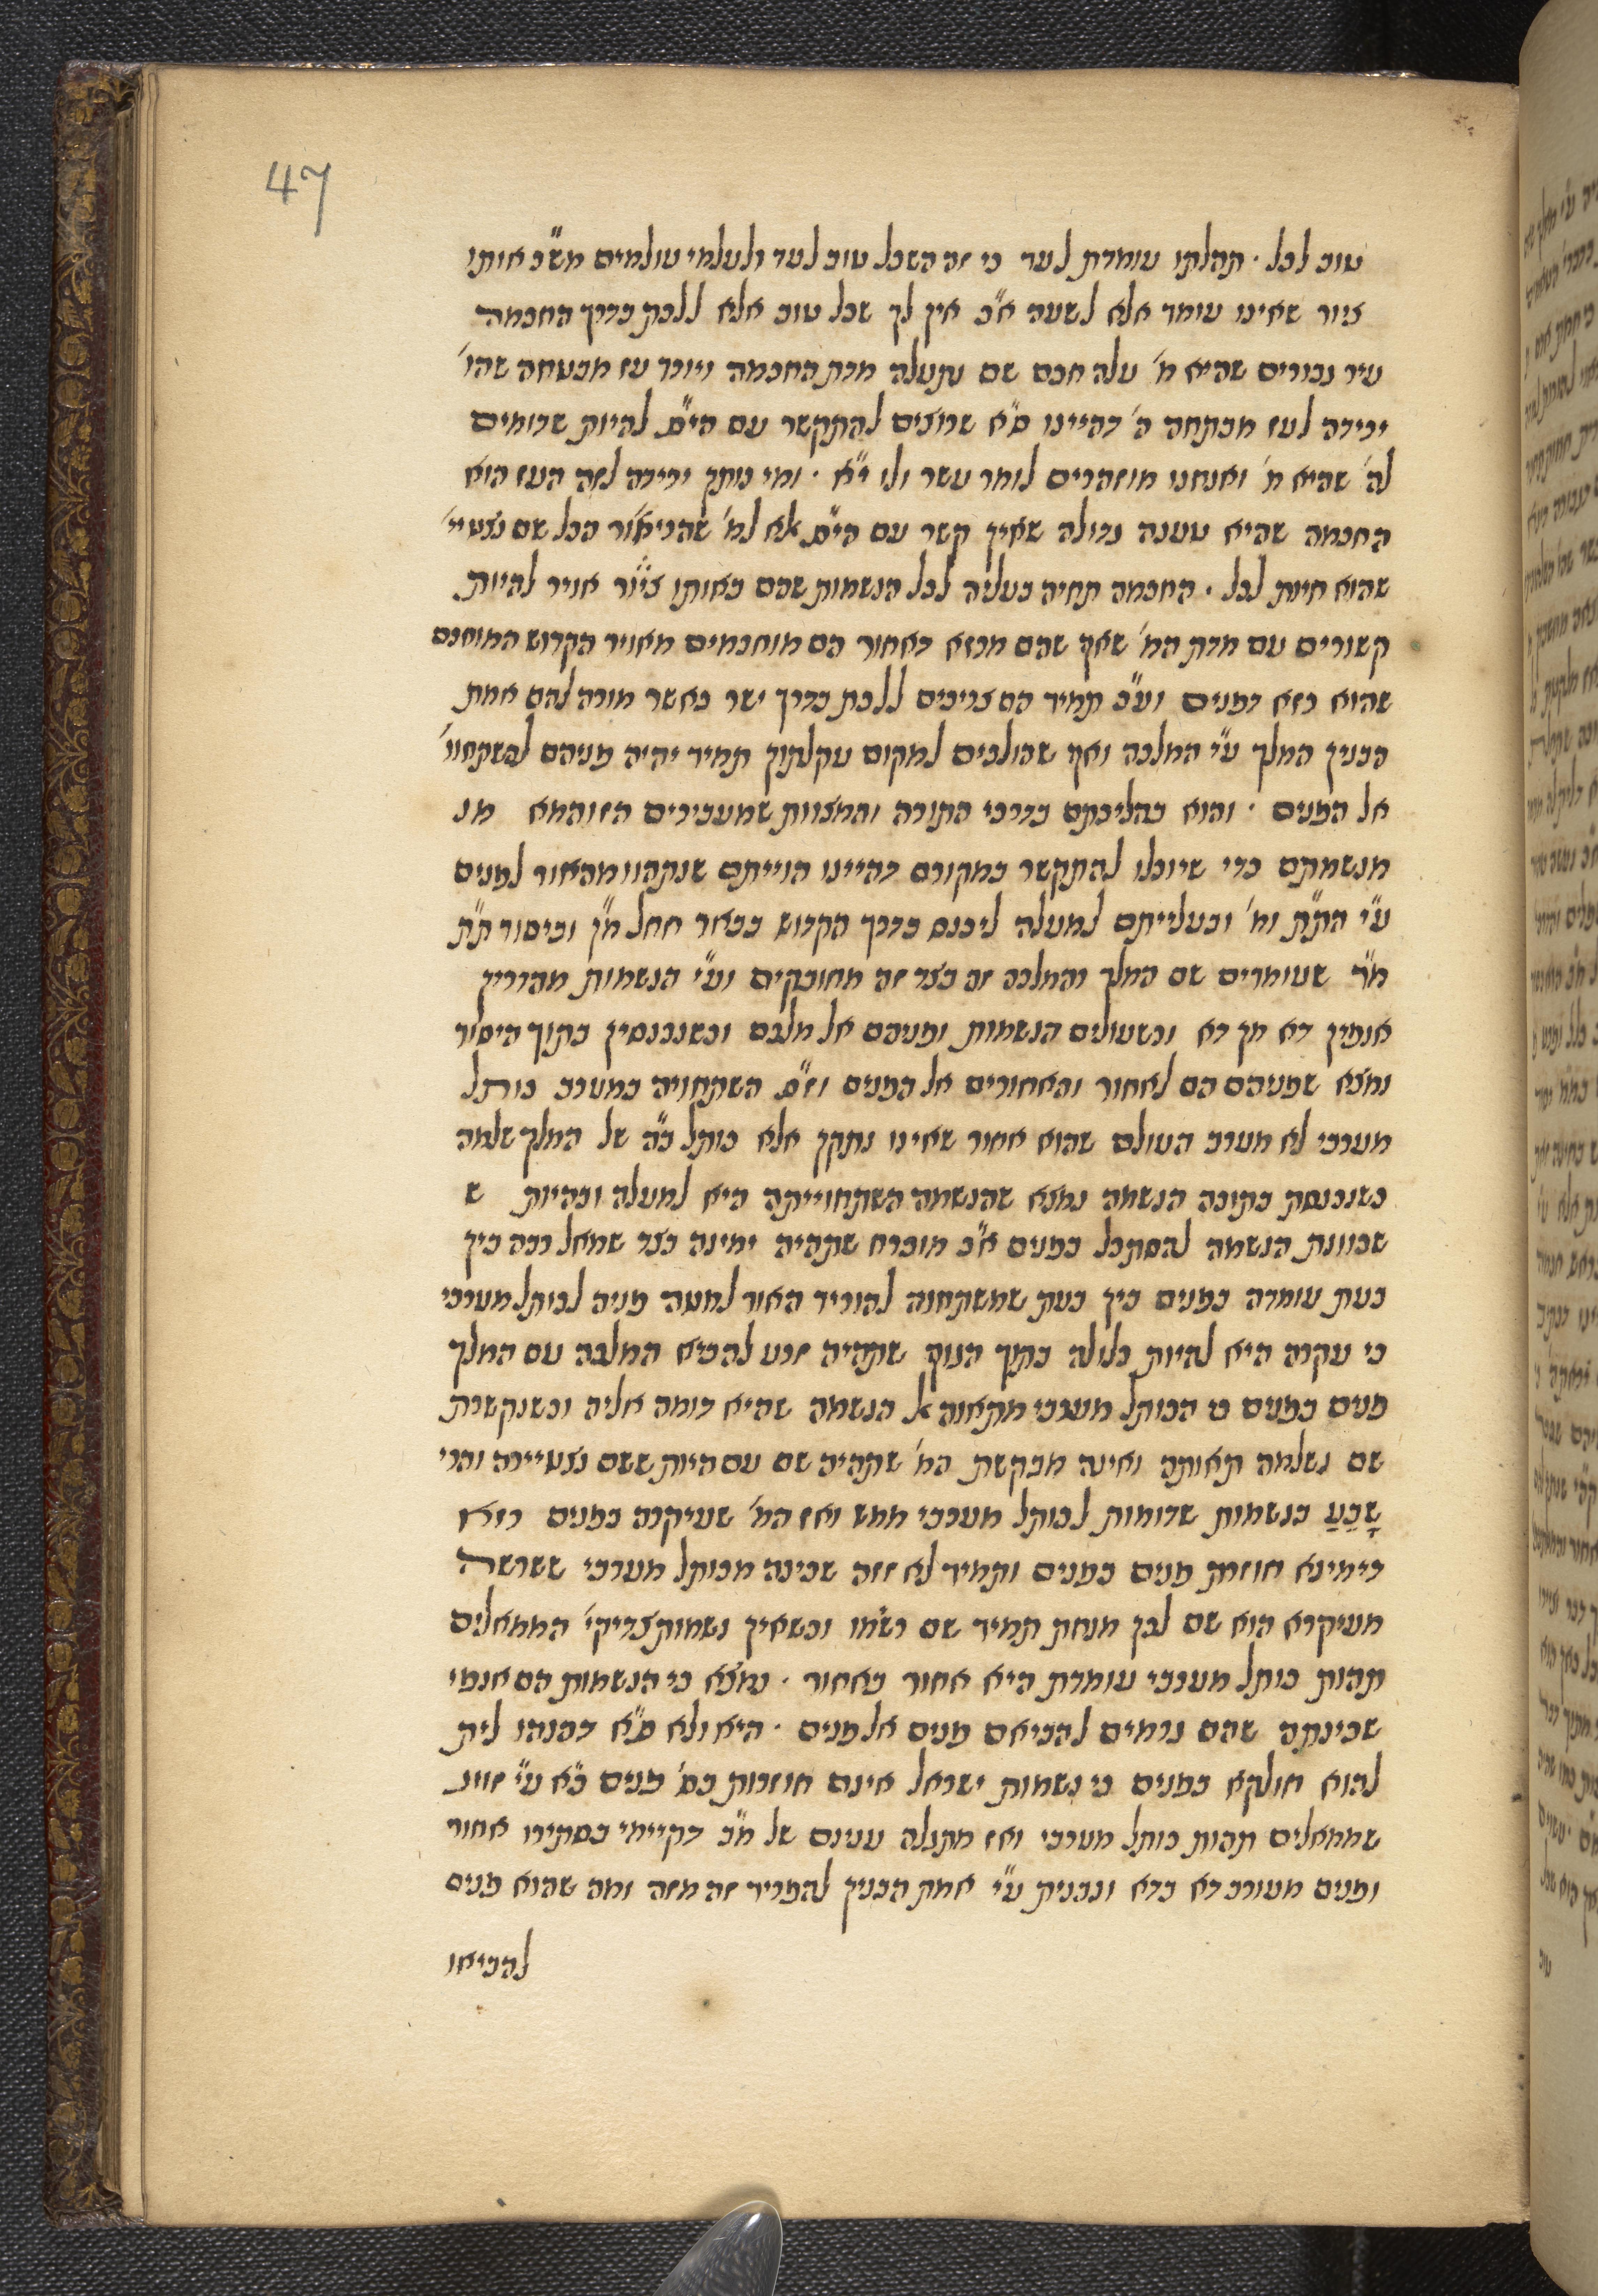 47
טוב לכל · תהלתו עומדת לעד כי זה השכל טוב לעד ולעלמי עולמים מש"כ אותו
ציור שאינו עומד אלא לשעה א"כ אין לך שכל טוב אלא ללכת בדרך החכמה
עיר גבורים שהיא מ' עלה חכם שם נתעלה מדת החכמה ויורד עז מבטחה שהו'
ירידה לעז מבטחה ה' דהיינו ס"א שרוצים להתקשר עם הי"ם להיות שדומים
לה' שהיא מ' ואנחנו מוזהרים לומר עשר ולו י"א · ומי נותן ירידה לזה העז הוא
החכמה שהיא טענה גדולה שאין קשר עם הי"ם אלא למ' שהביאור הכל שם נצטיי'
שהוא חיות לכל · החכמה תחיה בעליה לכל הנשמות שהם באותו ציור אויר להיות
קשורים עם מדת המ' שאף שהם מרזא דאחור הם מוחכמים מאויר הקדוש המוחכם
שהוא רזא דפנים וע"כ תמיד הם צריכים ללכת בדרך ישר כאשר מורה להם אמת
הבנין המלך ע"י המלכה ואף שהולכים למקום עקלתון תמיד יהיה פניהם להשתחוו'
אל הפנים · והוא בהליכתם בדרכי התורה והמצוות שמעבירים הזוהמא מנ
מנשמתם כדי שיוכלו להתקשר במקורם דהיינו הוייתם שנתהוו מהאור לפנים
ע"י הת"ת ומ' ובעלייתם למעלה ליכנס בדרך הקדוש בבאר חחל מ"ן וביסוד ת"ת
מ"ד שעומדים שם המלך והמלכה זה בצד זה מחובקים וע"י הנשמות מהדרין
אנפין דא מן דא וכשעולים הנשמות ופניהם אל מלכם וכשנכנסין בתוך היסוד
נמצא שפניהם הם לאחור והאחורים אל הפנים וז"ס השתחויה במערב כותל
מערבי לא מערב העולם שהוא אחור שאינו נתקן אלא כותל ב"ה של המלך שלמה
כשנכנסת בתוכה הנשמה נמצא שהנשמה השתחוייתה היא למעלה ובהיות ש
שכוונת הנשמה להסתכל בפנים א"כ מוכרח שתהיה ימינה כצד שמאל רכה בין
בעת עומדה בפנים בין בעת שמשתחוה להוריד האור למטה פניה לכותל מערבי
כי עקרה היא להיות כלולה בתוך הגוף שתהיה זרע להביא המלכה עם המלך
פנים בפנים כי הכותל מערבי מתאוה אל הנשמה שהיא דומה אליה וכשנקשרת
שם נשלמה תאותה ואינה מבקשת המ' שתהיה שם עם היות ששם נצטיירה והרי
שָבֵעַ בנשמות שדומות לכותל מערבי ממש ואז המ' שעיקרה בפנים רזא
דימינא חוזרת פנים בפנים ותמיד לא זזה שכינה מכותל מערבי ששרשה
מעיקרא הוא שם לכן מנחת תמיד שם רשמו וכשאין נשמות צדיקי' הממאלים
תהות כותל מערבי עומדת היא אחור באחור · נמצא כי הנשמות הם אנפי
שכינתה שהם גרמים להביאם פנים אל פנים · היא ולא ס"א דהנהו לית
להוא חולקא בפנים כי נשמות ישראל אינם חוזרות בס' פנים כ"א ע"י זווג
שממאלים תהות כותל מערבי ואז מתגלה ענינם של מ"ב דקיימי בסתירו אחור
ופנים מעורב דא בדא ונבנית ע"י אמת הבנין להפריד זה מזה ומה שהוא פנים
להביאו